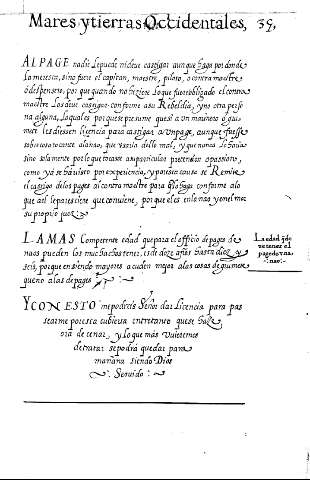 Mares ytierras Occidentales, 39,
AL PAGE nadie lepuede ni deue castigar aunque haga por donde
lo meresca, sino fuere el capitan, maestre, piloto, o contra maestre
o despensero, por que quando no hiziere lo que fuere obligado el contra
maestre los deue castigar conforme a su Rebeldia, y no otra perso
na alguna, la qual es por que se presume que si a un mancebo o gru
mete les diessen licencia para castigar a un page, aunque fuesse
sobrino o
sino solamente por lo que tocasse a su particular pretension o passion,
como ya se ha visto por experiencia, y por esta causa se Remite
el castigo de los pages al contra maestre para que lo haga conforme a lo
que a el le pareciere que conuiene, porque el es en la nao y en el mar
su proprio juez.
LA MAS Competente edad que para el officio de pages de
naos pueden los muchachos tener, es de diez años hasta diez y
seis, porque en siendo mayores acuden mejor a las cosas de grumete
que no a las de pages
La edad q̄ de
ue tener el
page de vna
nao.
Y CON ESTO me podreis Señor dar Licencia para pas
searme por esta cubierta entretanto que se haze
ora de cenar, y lo que más vuieremos
de tratar se podrá quedar para
mañana siendo Dios
Seruido